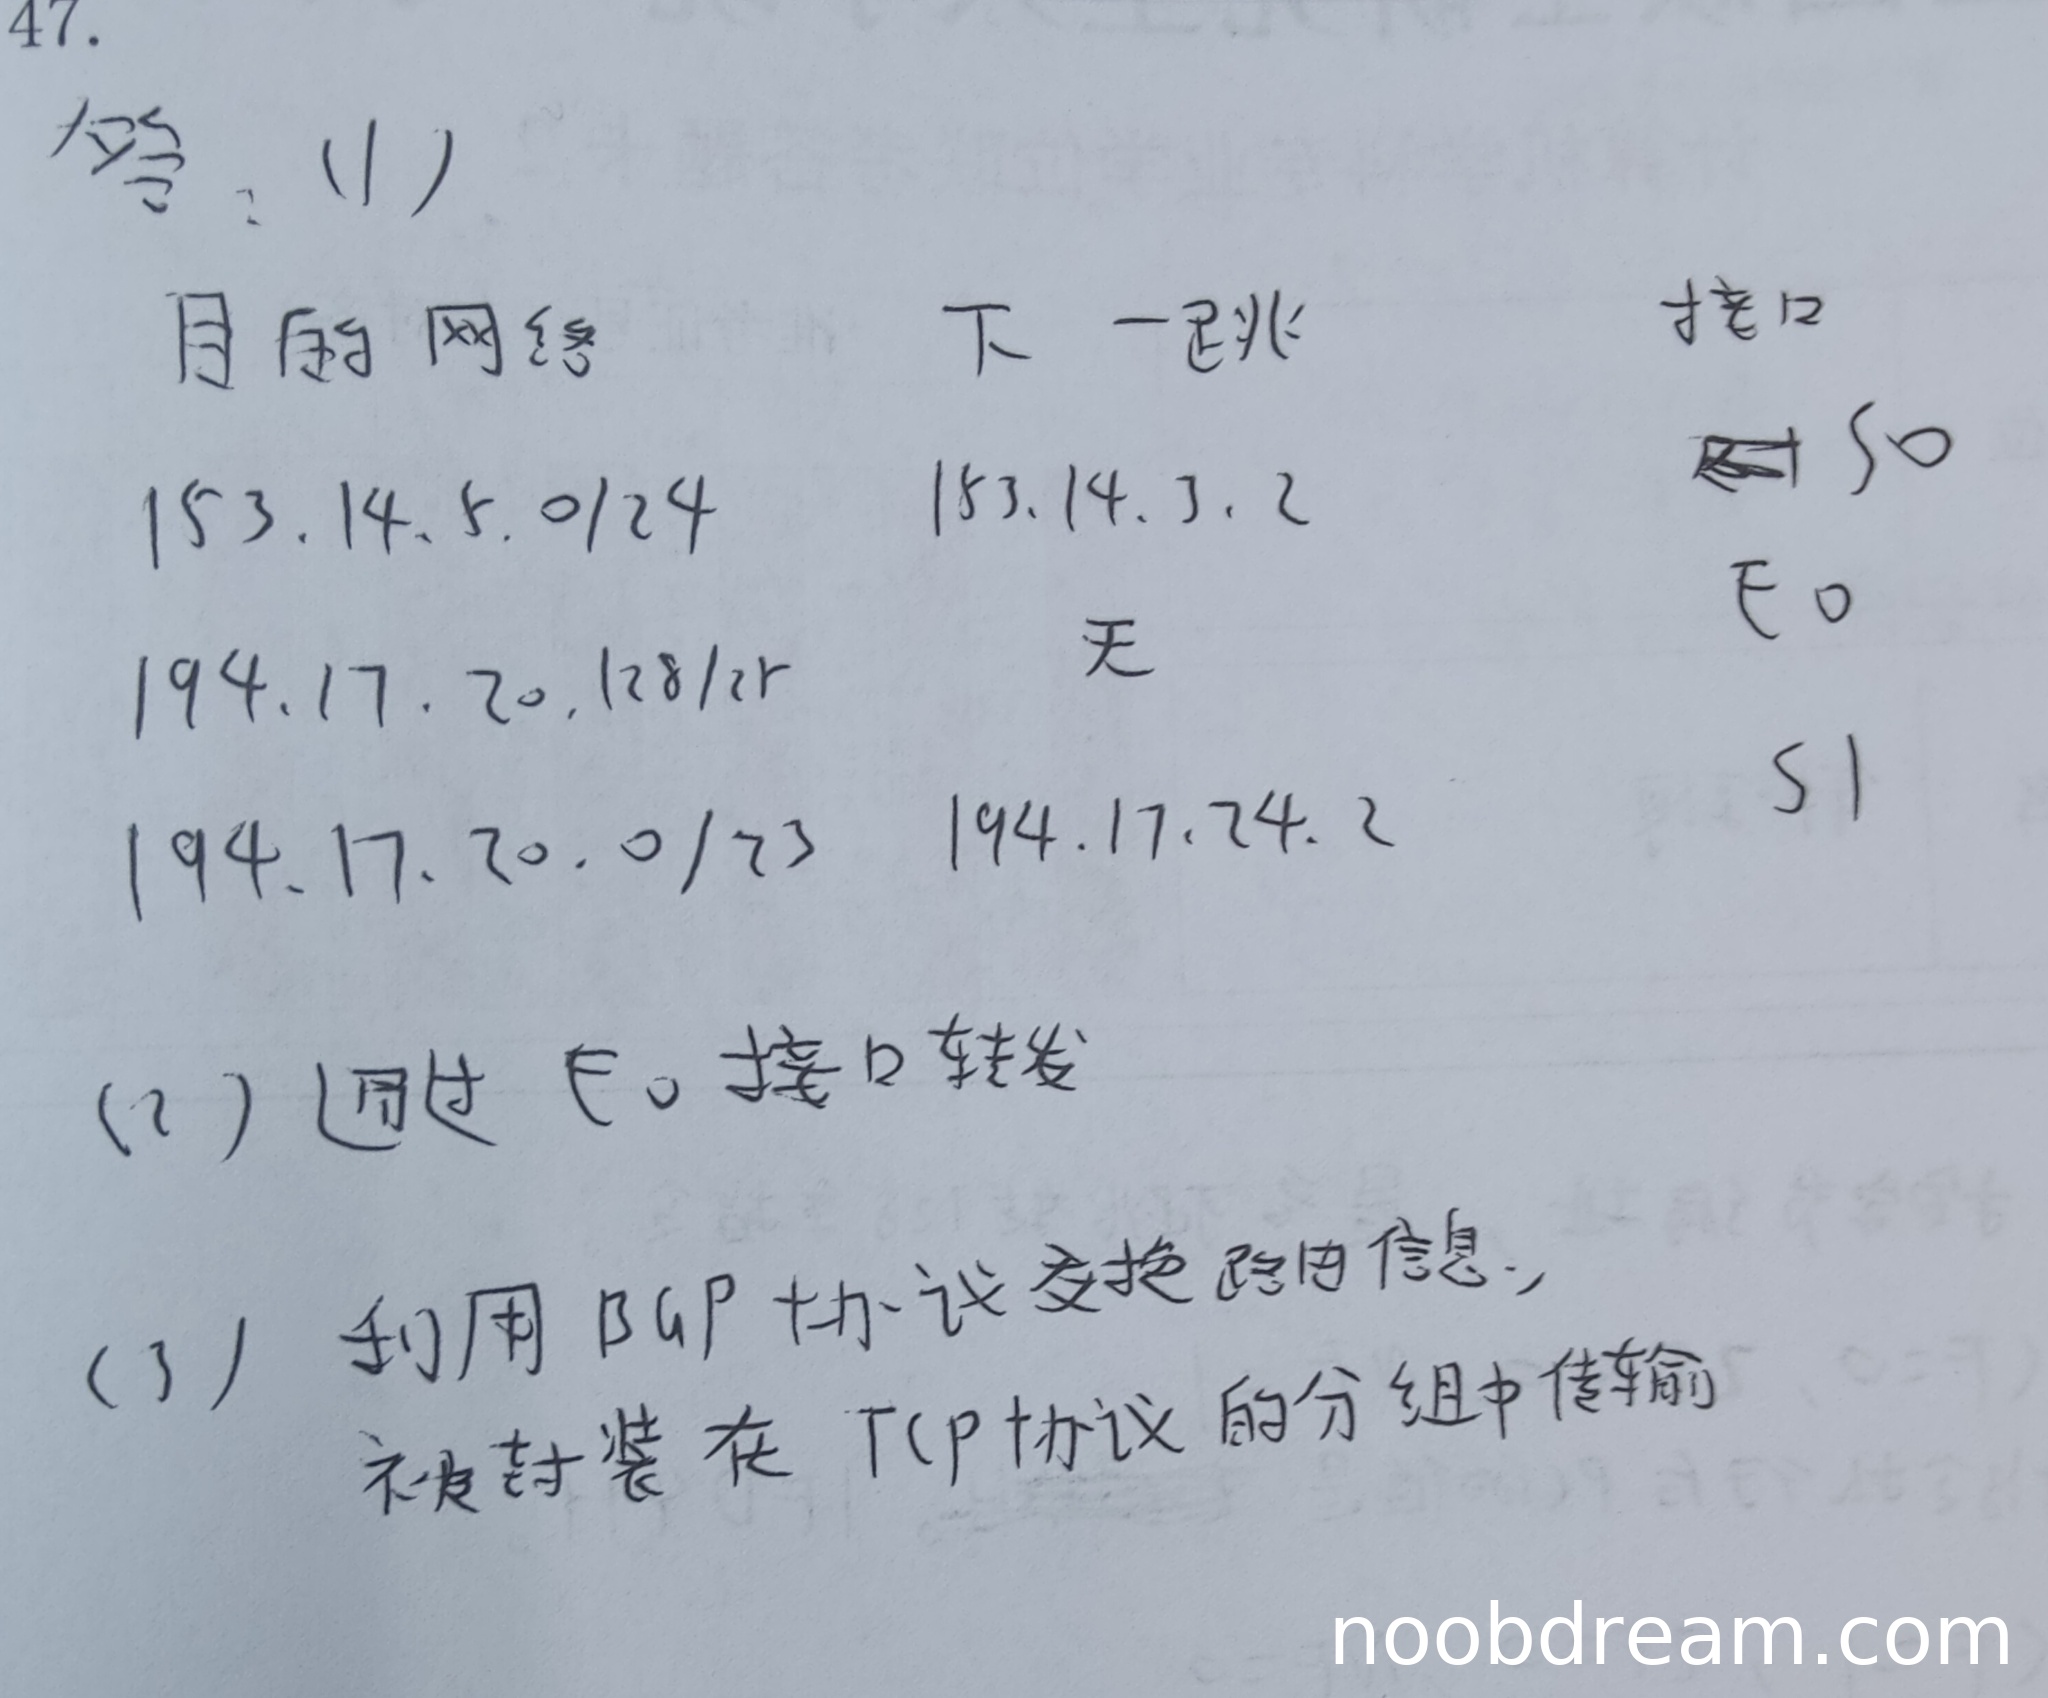 47.
答：(1)
目的网络 下一跳 接口
153.14.5.0/24 153.14.3.2 S0
194.17.20.128/25 无 E0
194.17.20.0/23 194.17.24.2 S1
(2) 通过 E0 接口转发
(3) 利用 BGP 协议交换路由信息，
被封装在 TCP协议的分组中传输
noobdream.com